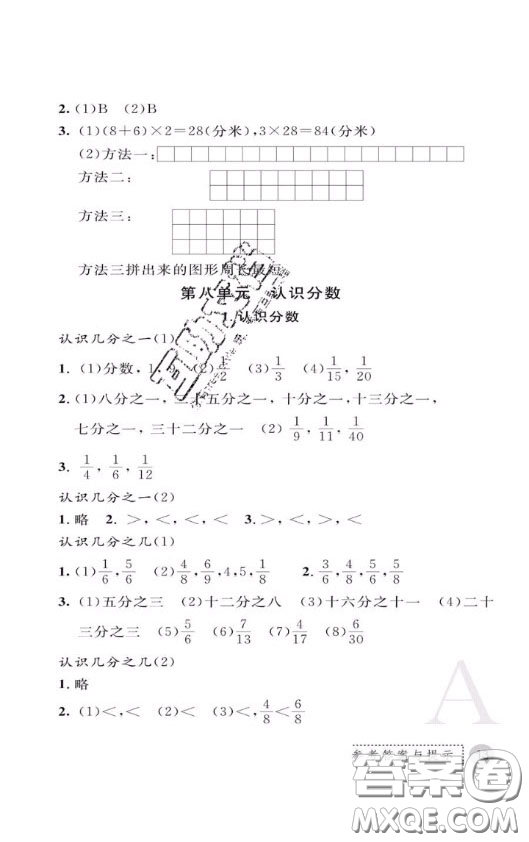 2. (1)B (2)B
3. (1)(8+6)×2=28(分米),3×28=84(分米)
(2)方法一:
方法二:
方法三:
方法三拼出来的图形周长最短
第八单元 认识分数
1.认识分数
认识几分之一(1)
1. (1)分数, (2) 1/2 (3) 1/3 (4) 1/15, 1/20
2. (1)八分之一,二十五分之一,十分之一,十三分之一,
七分之一,三十二分之一 (2) 1/9, 1/11, 1/40
3. 1/4, 1/6, 1/12
认识几分之一(2)
1. 略 2. >,<,<,< 3. >,<,>,<
认识几分之几(1)
1. (1) 1/6, 5/6 (2) 4/8, 6/9, 4,5, 1/8 2. 2/3, 4/8, 5/6, 5/8
3. (1)五分之三 (2)十二分之八 (3)十六分之十一 (4)二十
三分之三 (5) 5/6 (6) 7/13 (7) 4/17 (8) 6/30
认识几分之几(2)
1. 略
2. (1)<,< (2)<,< (3)<, 4/8 < 6/8
A
参考答案与提示
答案卷
MXQE.COM